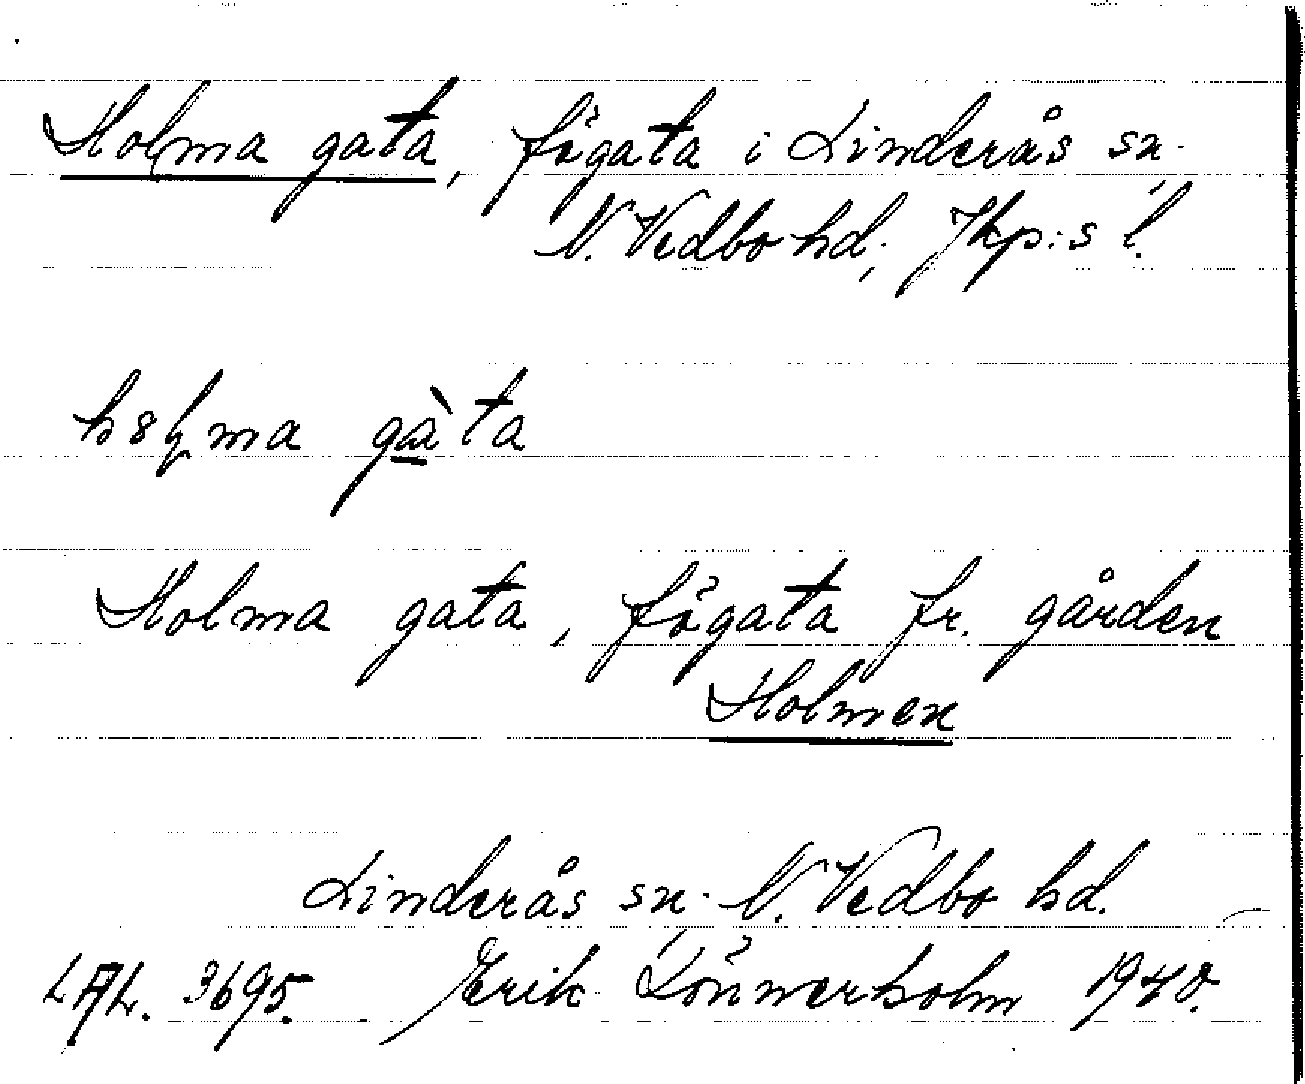 Holma gata, fögata i Linderås sn.
N. Vedbo hd, Jkp:s l.
gàta
Holma gata, fögata fr. gården
Holmen
Linderås sn. N. Vedbo hd.
LAL. 3695. Erik Lönnerholm 1940.